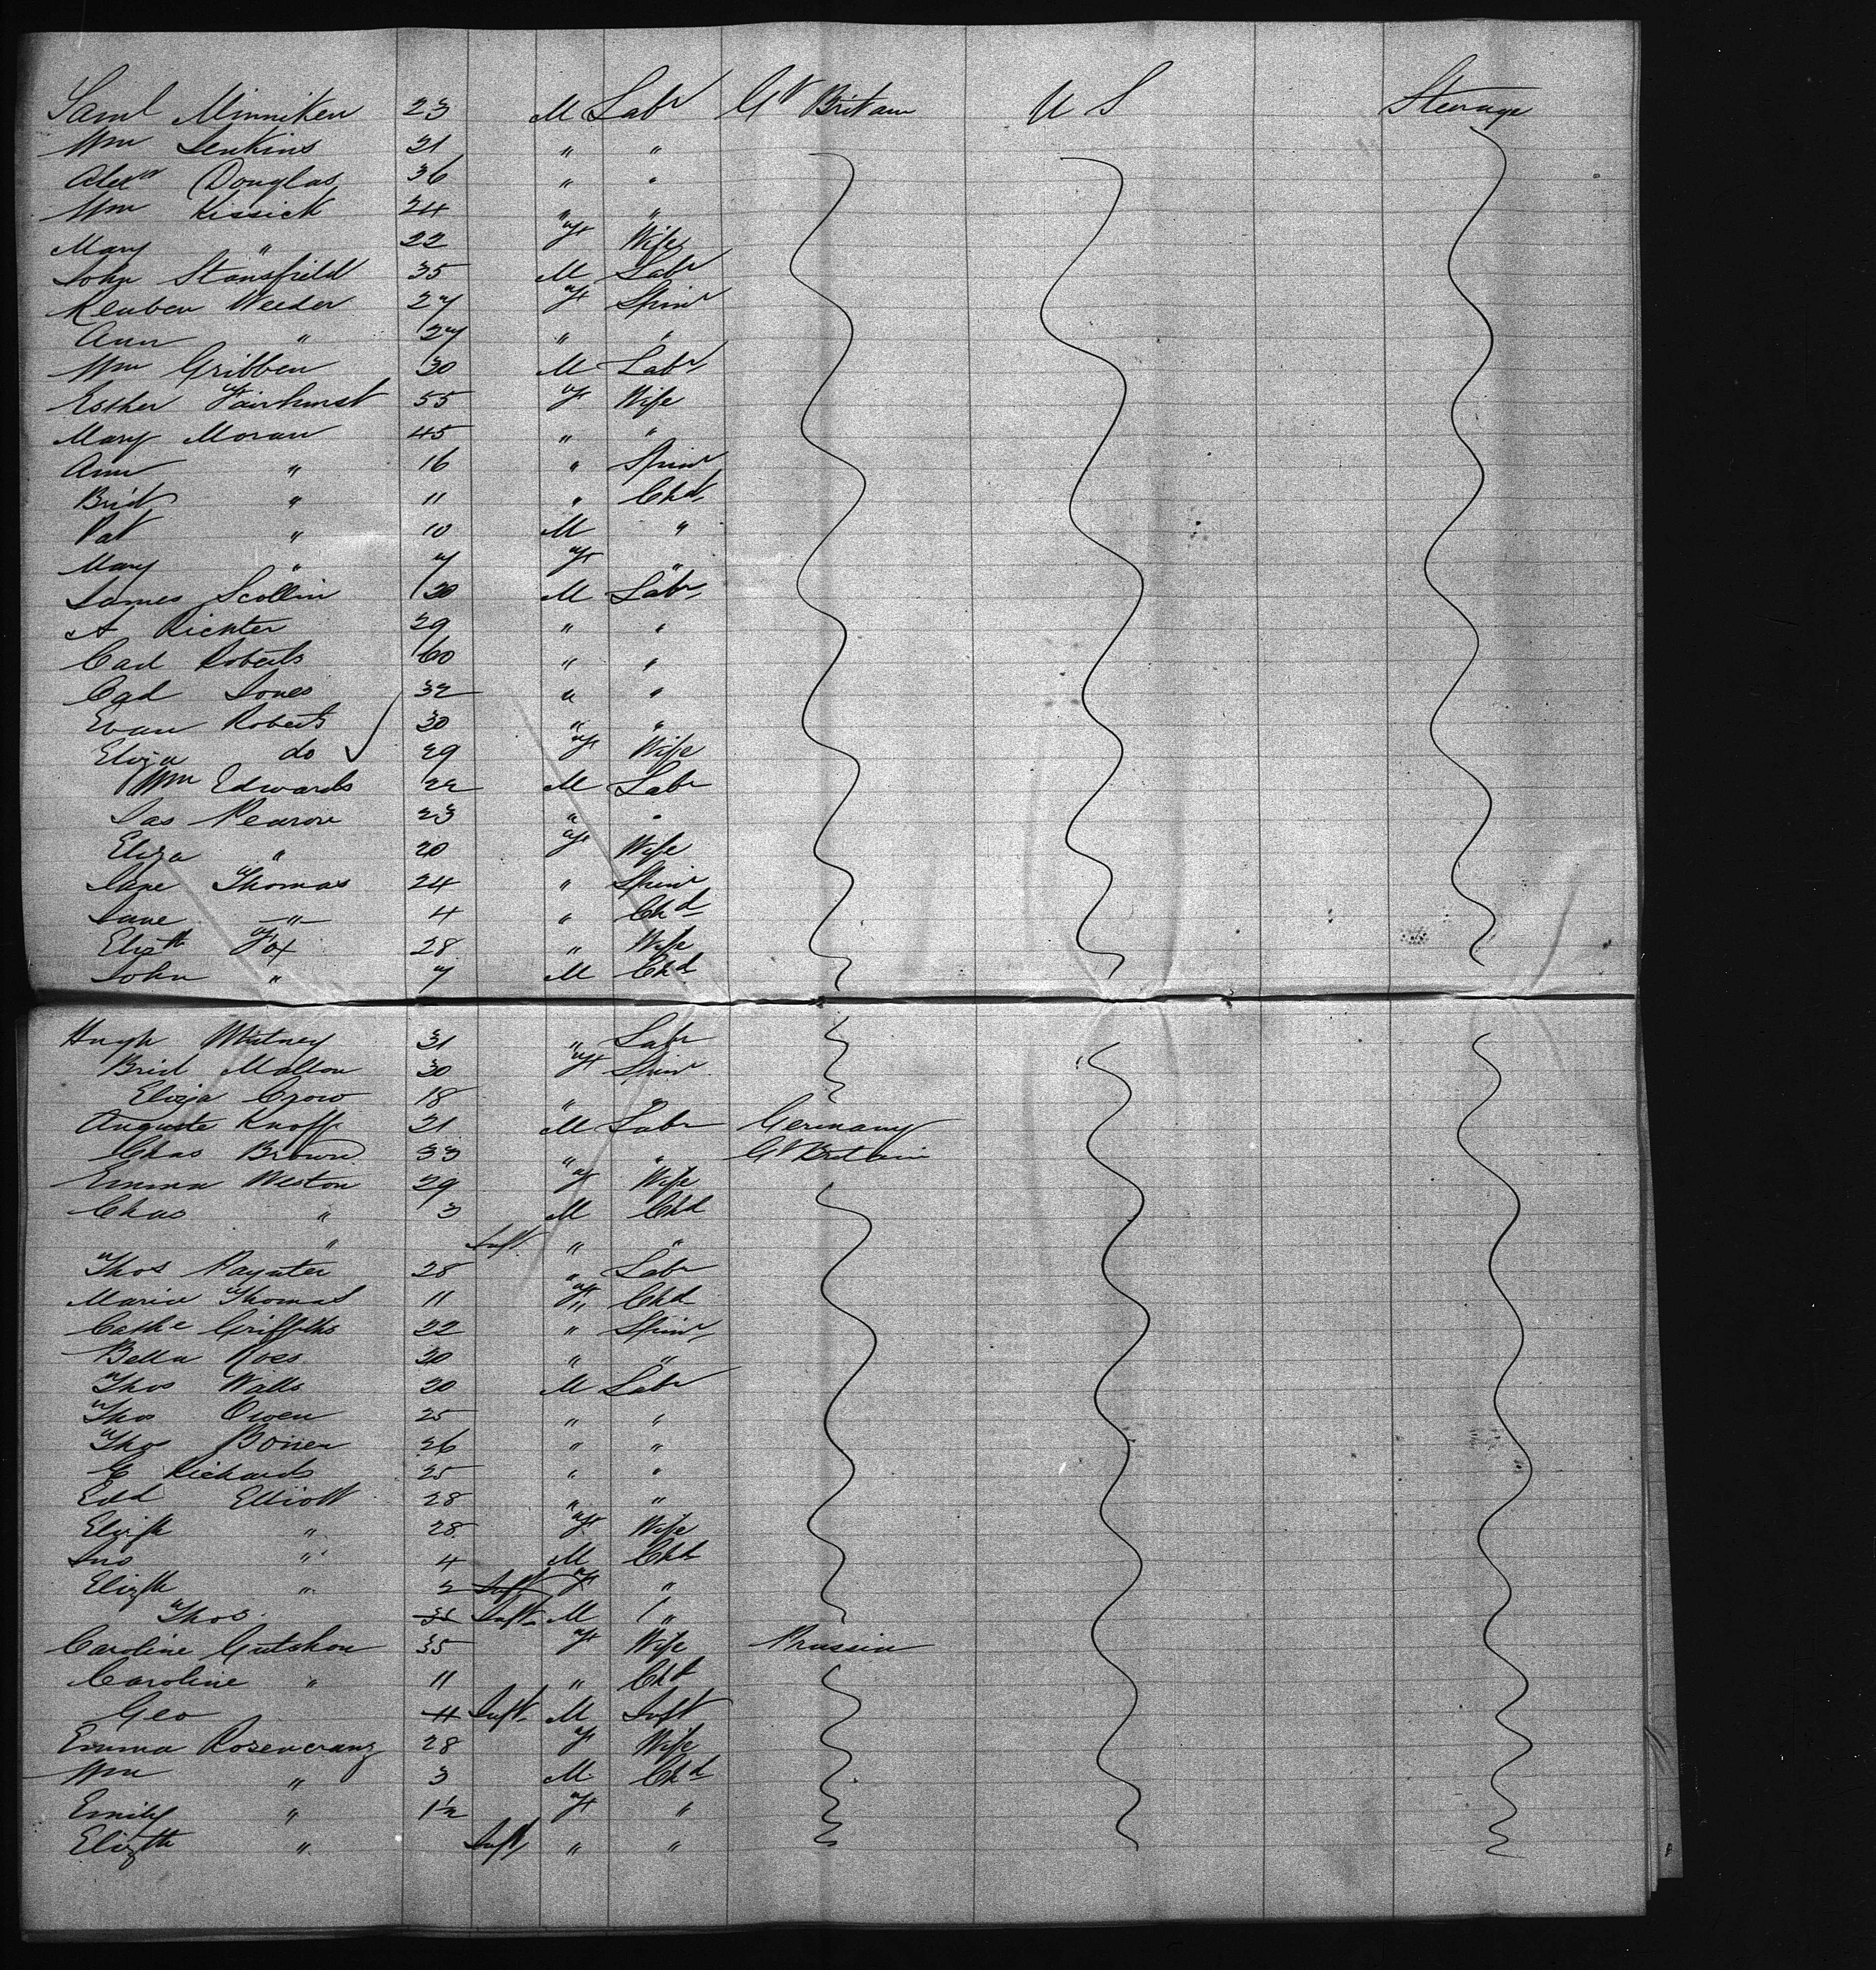 Saml Minniken 23 M Labr Gt Britain U S Steerage
Wm Jenkins 21 " "
Alexr Douglas 36 " "
Wm Kissick 24 " "
Mary " 22 F Wife
John Stansfield 35 M Labr
Reuben Weeder 27 F Spinr
Ann " 27 " "
Wm Gribben 30 M Labr
Esther Fairhurst 55 F Wife
Mary Moran 45 " "
Ann " 16 " Spinr
Brid " 11 " Chd
Pat " 10 M "
Mary " 7 F "
James Scollin 20 M Labr
A Richter 29 " "
Cad Roberts 60 " "
Cad Jones 32 " "
Evan Roberts 30 " "
Eliza do 29 F Wife
Wm Edwards 22 M Labr
Jas Pearon 23 " "
Eliza " 20 F Wife
Jane Thomas 24 " Spinr
Jane " 4 " Chd
Elizth Fox 28 " Wife
John " 7 M Chd
Hugh Whitney 31 " Labr
Brid Mallon 30 F Spinr
Eliza Crow 18 " "
Auguste Knoff 21 M Labr Germany
Chas Brown 33 " " Gt Britain
Emma Weston 29 F Wife
Chas " 3 M Chd
" Inft " "
Thos Paynter 28 " Labr
Maria Thomas 11 F " Chd
Cathe Griffiths 22 " Spinr
Bella Ross 20 " "
Thos Walls 20 M Labr
Thos Owen 25 " "
Thos 26 " "
E Richards 25 " "
Edd Elliott 28 " "
Elizth " 28 F Wife
Jno " 4 M Chd
Elizth " 2 Inft F "
Thos Inft M "
Caroline Gutshon 35 F Wife Prussia
Caroline " 11 " Chd
Geo Inft M Inft
Emma Rosencranz 28 F Wife
Wm " 3 M Chd
Emily " 1½ F "
Elizth " Inft " "